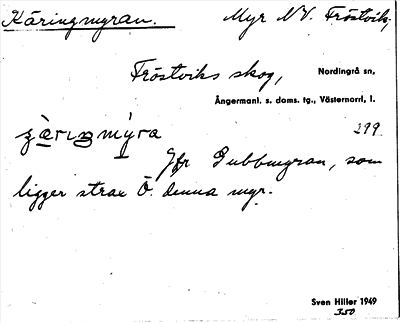 Käringmyran. Myr NV. Fröstvik,
Fröstviks skog, Nordingrå sn,
Ångermanl. s. doms. tg., Västernorrl, l.
299.
Jfr Gubbmyran, som
ligger strax Ö. denna myr.
Sven Hiller 1949
350